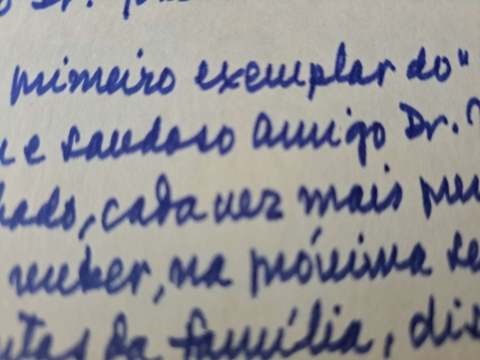 Dr.
primeiro exemplar do"
e saudoso amigo Dr.
cada vez mais
receber, na próxima
da família,